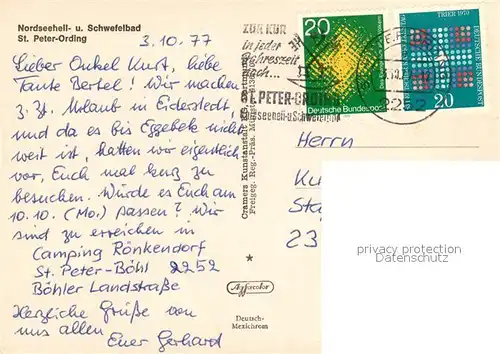 Nordseeheil- u. Schwefelbad
St. Peter-Ording
3.10.77
Lieber Onkel Kurt, liebe
Tante Bertel! Wir machen
z. Zt. Urlaub in Eiderstedt,
und da es bis Eggebek nicht
weit ist, hatten wir eigentlich
vor, Euch mal kurz zu
besuchen. Würde es Euch am
10.10. (Mo.) passen? Wir
sind zu erreichen in
Camping Rönkendorf
St. Peter-Böhl 2252
Böhler Landstraße
Herzliche Grüße von
uns allen
Euer Gerhard
Cramers Kunstanstalt
Freigeg. Reg.-Präs.
Agfacolor
Deutsch-
Mexichrom
ZUR KUR
in jeder
Jahreszeit
nach...
ST. PETER-ORDING
Nordseeheil-u.Schwefelbad
20
Deutsche Bundespost
TRIER 1970
20
2252
Herrn
Ku
St
23
privacy protection
Datenschutz